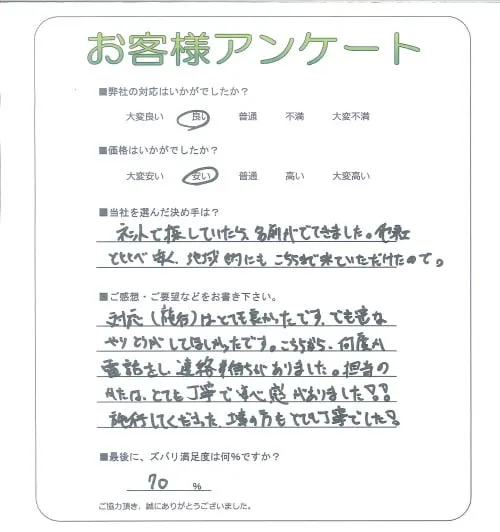 お客様アンケート
■弊社の対応はいかがでしたか？
大変良い 良い 普通 不満 大変不満
■価格はいかがでしたか？
大変安い 安い 普通 高い 大変高い
■当社を選んだ決め手は？
ネットで探していたら、名前がでてきました。他社
と比べ安く、地域的にもこちらまで来ていただけたので。
■ご感想・ご要望などをお書き下さい。
対応（施工）はとても良かったです。でも
やりとりがしてほしかったです。こちらから、何度か
電話をし、連絡待ちがありました。担当の
方は、とても丁寧で 感がありました
施行してくださった、工事の方もとても丁寧でした
■最後に、ズバリ満足度は何％ですか？
70 ％
ご協力頂き、誠にありがとうございました。